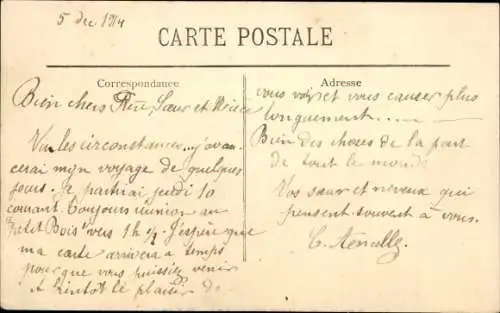 5 Dec 1914
CARTE POSTALE
Correspondance
Bien chers Frère, Sœur et Nièce
Vu les circonstances, j'avan-
cerai mon voyage de quelques
jours. Je partirai jeudi 10
courant. Toujours réunion au
"Petit Bois" vers 1h ½. J'espère que
ma carte arrivera à temps
pour que vous puissiez venir
A bientôt le plaisir de
Adresse
vous voir et vous causer plus
longuement.........
Bien des choses de la part
de tout le monde
Vos sœur et neveux qui
pensent souvent à vous.